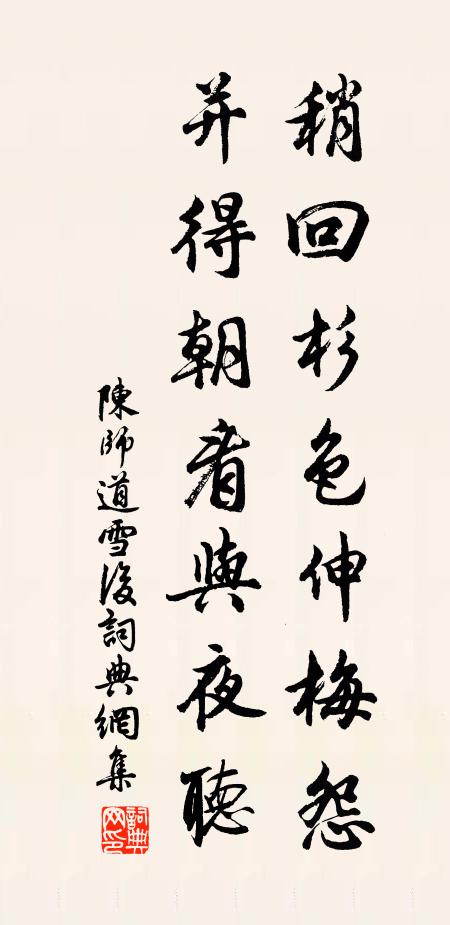 稍回杉色伸梅怨
并得朝看與夜聽
陳師道雪後詞典網集
詞典網印